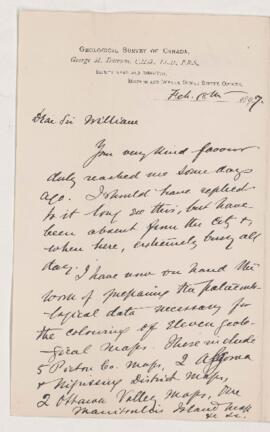 GEOLOGICAL SURVEY OF CANADA.
George M. Dawson, C.M.G., LL.D., F.R.S.
Feb. 18th 1897.
Dear Sir William
Your very kind favour
duly reached me some days
ago. I should have replied
to it long ere this, but have
been absent from the city &
when here, extremely busy all
day.
I have now on hand the
work of preparing the palaeonto-
logical data necessary for
the colouring of eleven geolo-
gical maps. These include
5 Pictou Co. maps, 2 Algoma
& Nipissing District maps,
2 Ottawa Valley maps, one
Manitoulin Island map
&c &c.